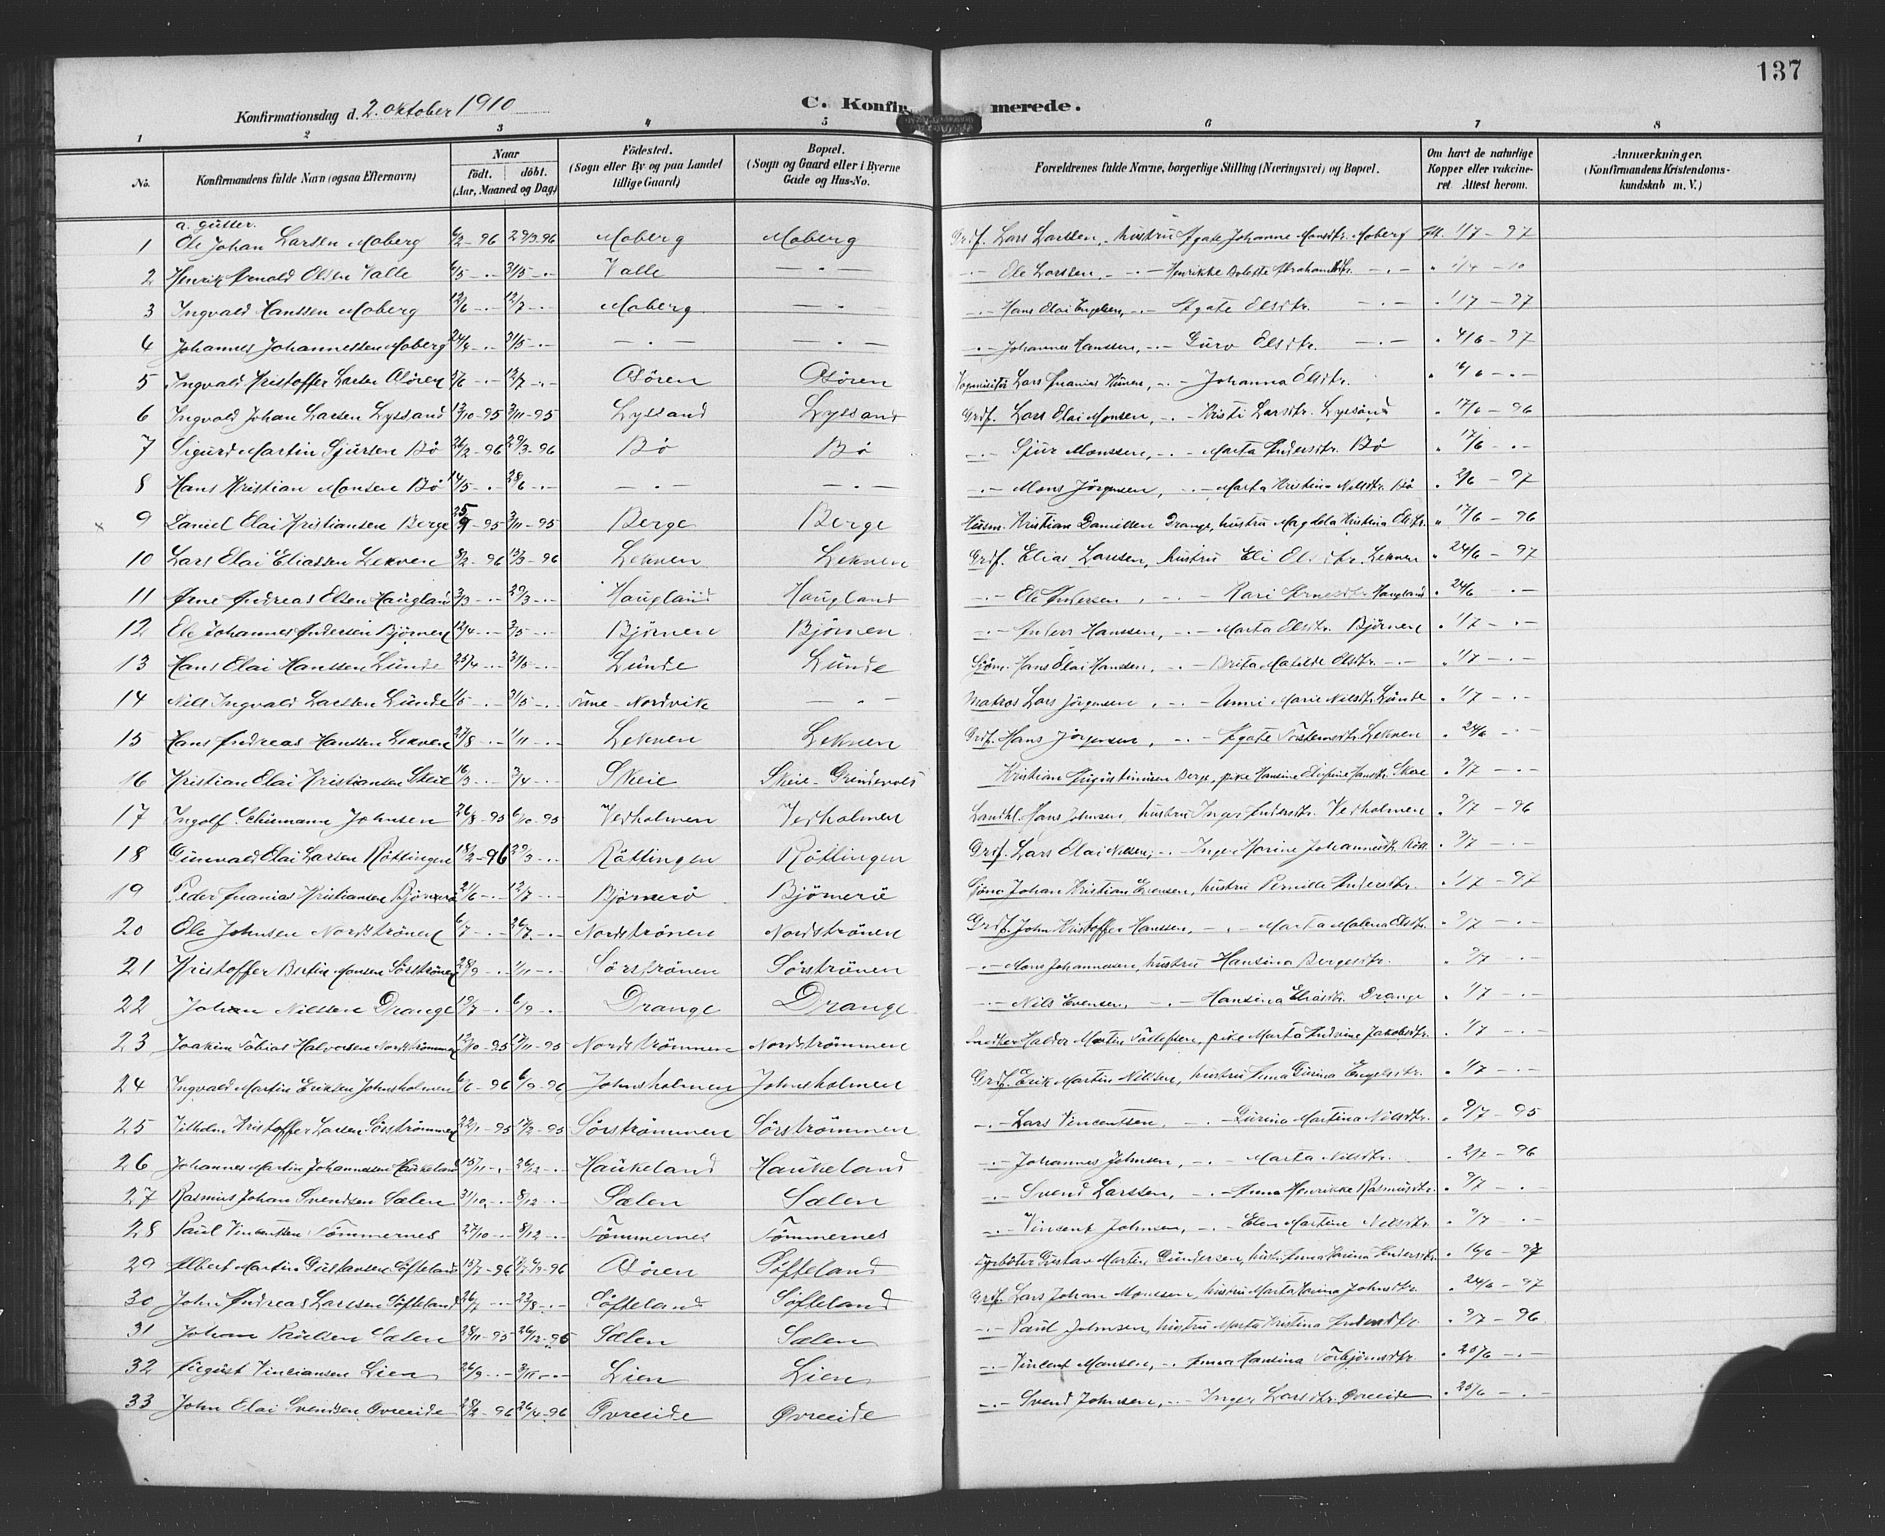 137
Konfirmationsdag d. 2. oktober 1910
C. Konfirmerede.
1 2 3 4 5 6 7 8
No. Konfirmandens fulde Navn (ogsaa Efternavn) Naar født. døbt. (Aar, Maaned og Dag) Fødested. (Sogn eller By og paa Landet tillige Gaard) Bopæl. (Sogn og Gaard eller i Byerne Gade og Hus-No. Forældrenes fulde Navne, borgerlige Stilling (Næringsvei) og Bopæl. Om havt de naturlige Kopper eller vakcineret. Attest herom. Anmærkninger. (Konfirmandens Kristendomskundskab m. V.)
a. gutter.
1 Ole Johan Larsen Moberg 6/2-96 29/3-96 Moberg Moberg Grdf. Lars Larsen, hustru Agate Johanne Monsdtr. Moberg 1/7-97
2 Henrik Arnold Olsen Valle 6/5 -.- 31/5 -.- Valle -.- Ole Larsen, -.- Henrikke Bolette Abrahamsdtr. -.- " 1/4-10
3 Ingvald Hanssen Moberg 12/6 -.- 12/7 -.- Moberg -.- -.- Hans Elai Engelsen, -.- Agate Olsdtr. -.- " 1/7-97
4 Johannes Johannessen Moberg 24/4 -.- 31/5 -.- -.- -.- -.- Johannes Hanssen, -.- Guro Olsdtr. -.- " 4/6-97
5 Ingvald Kristoffer Larsen Osøren 5/6 -.- 12/7 -.- Osøren Osøren Lars Ananias -.- Johanna Olsdtr. " 16/6 -.-
6 Ingvald Johan Larsen Lyssand 13/10-95 3/11-95 Lyssand Lyssand Grdf. Lars Elai Monsen, -.- Kristi Larsdtr. Lyssand " 17/6-96
7 Sigurd Martin Sjursen Bø 26/2-96 29/3-96 Bø Bø -.- Sjur Monssen, -.- Marta Andersdtr. Bø " 17/6 -.-
8 Hans Kristian Monsen Bø 14/5 -.- 28/6 -.- -.- -.- -.- Mons Jørgensen, -.- Marta Kristina Nilsdtr. Bø " 2/6-97
x 9 Daniel Elai Kristiansen Berge 25/9-95 3/11-95 Berge Berge Husm. Kristian Danielsen Drange, hustru Magdela Kristina Olsdtr. " 17/6-96
10 Lars Elai Eliassen Lekven 8/2-96 15/3-96 Lekven Lekven Grdf. Elias Larssen, hustru Eli Olsdtr. Lekven " 24/6-97
11 Arne Andreas Olsen Haugland 3/3 -.- 29/3 -.- Haugland Haugland -.- Ole Andersen, -.- Kari Arnesdtr. Haugland " 24/6 -.-
12 Ole Johannes Andersen Bjørnen 12/4 -.- 3/5 -.- Bjørnen Bjørnen -.- Anders Hanssen, -.- Marta Olsdtr. Bjørnen " 1/7 -.-
13 Hans Elai Hanssen Lunde 25/4 -.- 31/5 -.- Lunde Lunde Sjøm. Hans Elai Hanssen, -.- Brita Matilde Olsdtr. -.- " 1/7 -.-
14 Nils Ingvald Larssen Lunde 1/5 -.- 31/5 -.- Fane - Nordvik -.- Matros Lars Jørgensen, -.- Anne Marie Nilsdtr. Lunde " 1/7 -.-
15 Hans Andreas Hanssen Lekven 27/8 -.- 1/11 -.- Lekven Lekven Grdf. Hans Jørgensen, -.- Agate Torstensdtr. Lekven " 24/6 -.-
16 Kristian Elai Kristiansen Skeie 16/3 -.- 3/4 -.- Skeie Skeie - Grindevold Kristian Augustinusen Berge, pike Hansine Elisfine Hansdtr. Skeie " 9/7 -.-
17 Ingolf Schumann Johnsen 26/8-95 6/10-95 Vedholmen Vedholmen Landhl. Hans Johnsen, hustru Inger Andersdtr. Vedholmen " 9/7-96
18 Gunvald Elai Larsen Røttingen 18/2-96 29/3 -.- Røttingen Røttingen Grdf. Lars Elai Nilsen, -.- Inger Marine Johannesdtr. Rött. " 9/7 -.-
19 Peder Ananias Kristiansen Bjørnerø 21/6 -.- 12/7 -.- Bjørnerø Bjørnerø Sjøm. Johan Kristian Evensen, hustru Pernille Andersdtr. " 1/7-97
20 Ole Johnsen Nordstrønen 6/7 -.- 26/7 -.- Nordstrønen Nordstrønen Grdf. John Kristoffer Hanssen, -.- Marta Malena Olsdtr. " 9/7 -.-
21 Kristoffer Bertin Monsen Sørstrønen 28/9 -.- 1/11 -.- Sørstrønen Sørstrønen -.- Mons Johannessen, hustru Hansina Bergesdtr. " 9/7 -.-
22 Johan Nilssen Drange 19/7 -.- 6/9 -.- Drange Drange -.- Nils Evensen, -.- Hansina Eliasdtr. Drange " 1/7 -.-
23 Joakim Tobias Halvorsen Nordstrømmen 12/10-95 17/11-95 Nordstrømmen Nordstrømmen Snedker Haldor Martin Tollefsen, pike Marta Andrine Jakobsdtr. " 1/7 -.-
24 Ingvald Martin Eriksen Johnsholmen 6/6-96 6/9-96 Johnsholmen Johnsholmen Grdf. Erik Martin Nilssen, hustru Anna Gurina Engelsdtr. " 1/7 -.-
25 Vilhelm Kristoffer Larsen Sørstrømmen 22/1-95 17/2-95 Sørstrømmen Sørstrømmen -.- Lars Vincentsen, -.- Gurina Martina Nilsdtr. " 9/7-95
26 Johannes Martin Johannessen Haukeland 15/11 -.- 26/12 -.- Haukeland Haukeland -.- Johannes Johnsen, -.- Marta Nilsdtr. " 2/7-96
27 Rasmus Johan Svendsen Sælen 31/10 -.- 8/12 -.- Sælen Sælen -.- Svend Larssen, -.- Anna Henrikke Rasmusdtr. " 9/7 -.-
28 Paul Vincentsen Tømmernes 27/10 -.- 8/12 -.- Tømmernes Tømmernes -.- Vincent Johnsen, -.- Elen Martine Nilsdtr. " 9/7 -.-
29 Albert Martin Gustavsen Søfteland 15/7-96 6/9-96 Osøren Søfteland Gustav Martin Gundersen, hustr. Anna Karina Andersdtr. " 16/6-97
30 John Andreas Larssen Søfteland 26/7 -.- 23/8 -.- Søfteland Søfteland Grdf. Lars Johan Monssen, hustru Marta Karina Johnsdtr. " 24/6-97
31 Johan Paulsen Sælen 28/11-95 26/12-95 Sælen Sælen -.- Paul Johnsen, hustru Marta Kristina Andersdtr. " 9/7-96
32 August Vinciansen Lien 26/9 -.- 3/11 -.- Lien Lien -.- Vincent Monsen, -.- Anna Hansina Torbjørnsdtr. " 25/6 -.-
33 John Elai Svendsen Øvreeide 28/2-96 26/4-96 Øvreeide Øvreeide -.- Svend Johnsen, -.- Inger Larsdtr. Øvreeide " 25/6 -.-